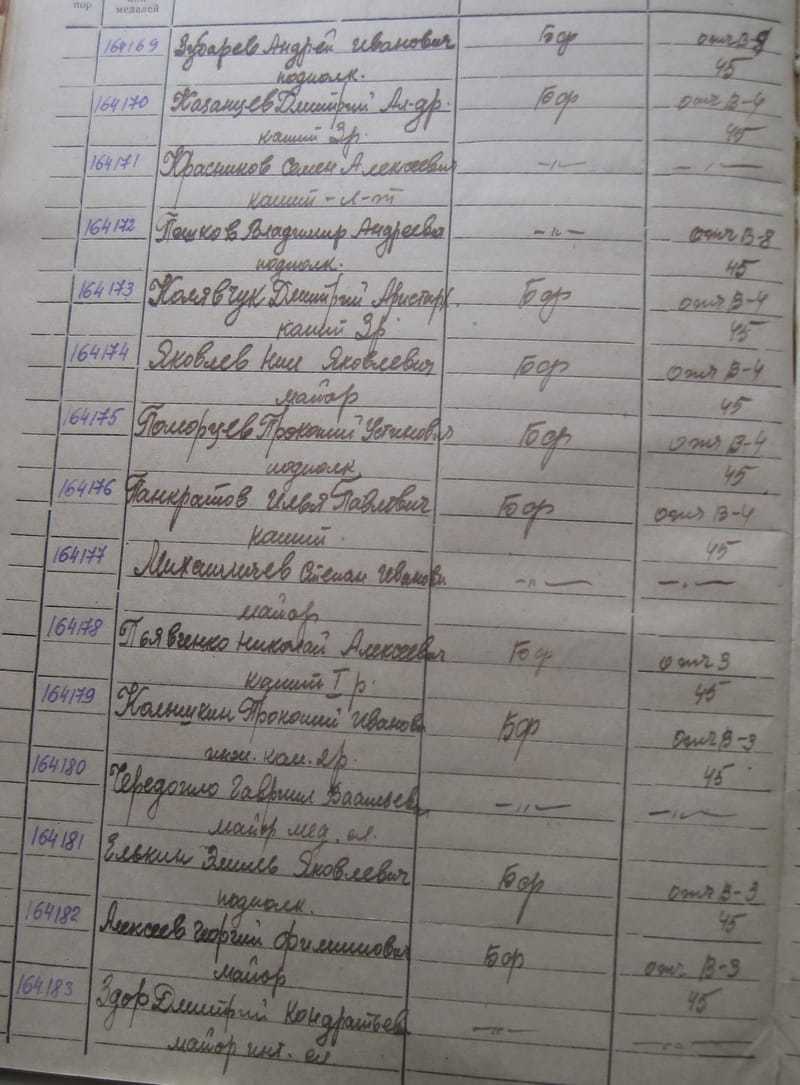 пор
медалей
164169 Зубарев Андрей Иванович БФ отч В-9
подполк. 45
164170 Казанцев Дмитрий Ал-др. БФ отч В-4
капит 3 р. 45
164171 Красников Семен Алексеевич -"- -"-
капит-л-т
164172 Пешков Владимир Андреевич -"- отч В-8
подполк. 45
164173 Колявчук Дмитрий Аристарх. БФ отч В-4
капит 3 р. 45
164174 Яковлев Нил Яковлевич БФ отч В-4
майор 45
164175 Поморцев Прокопий Устинович БФ отч В-4
подполк 45
164176 Панкратов Илья Павлович БФ отч В-4
капит. 45
164177 Степан Иванови -"- -"-
майор
164178 Пьявченко Николай Алексеевич БФ отч 3
капит I р. 45
164179 Колышкин Прокопий Иванови БФ отч В-3
инж. кап. 2 р. 45
164180 Гавриил Васильеви -"- -"-
майор мед. сл.
164181 Елькин Яковлевич БФ отч В-3
подполк. 45
164182 Алексеев Георгий Филиппович БФ отч. В-3
майор 45
164183 Здор Дмитрий Кондратьеви -"- -"-
майор инт. сл